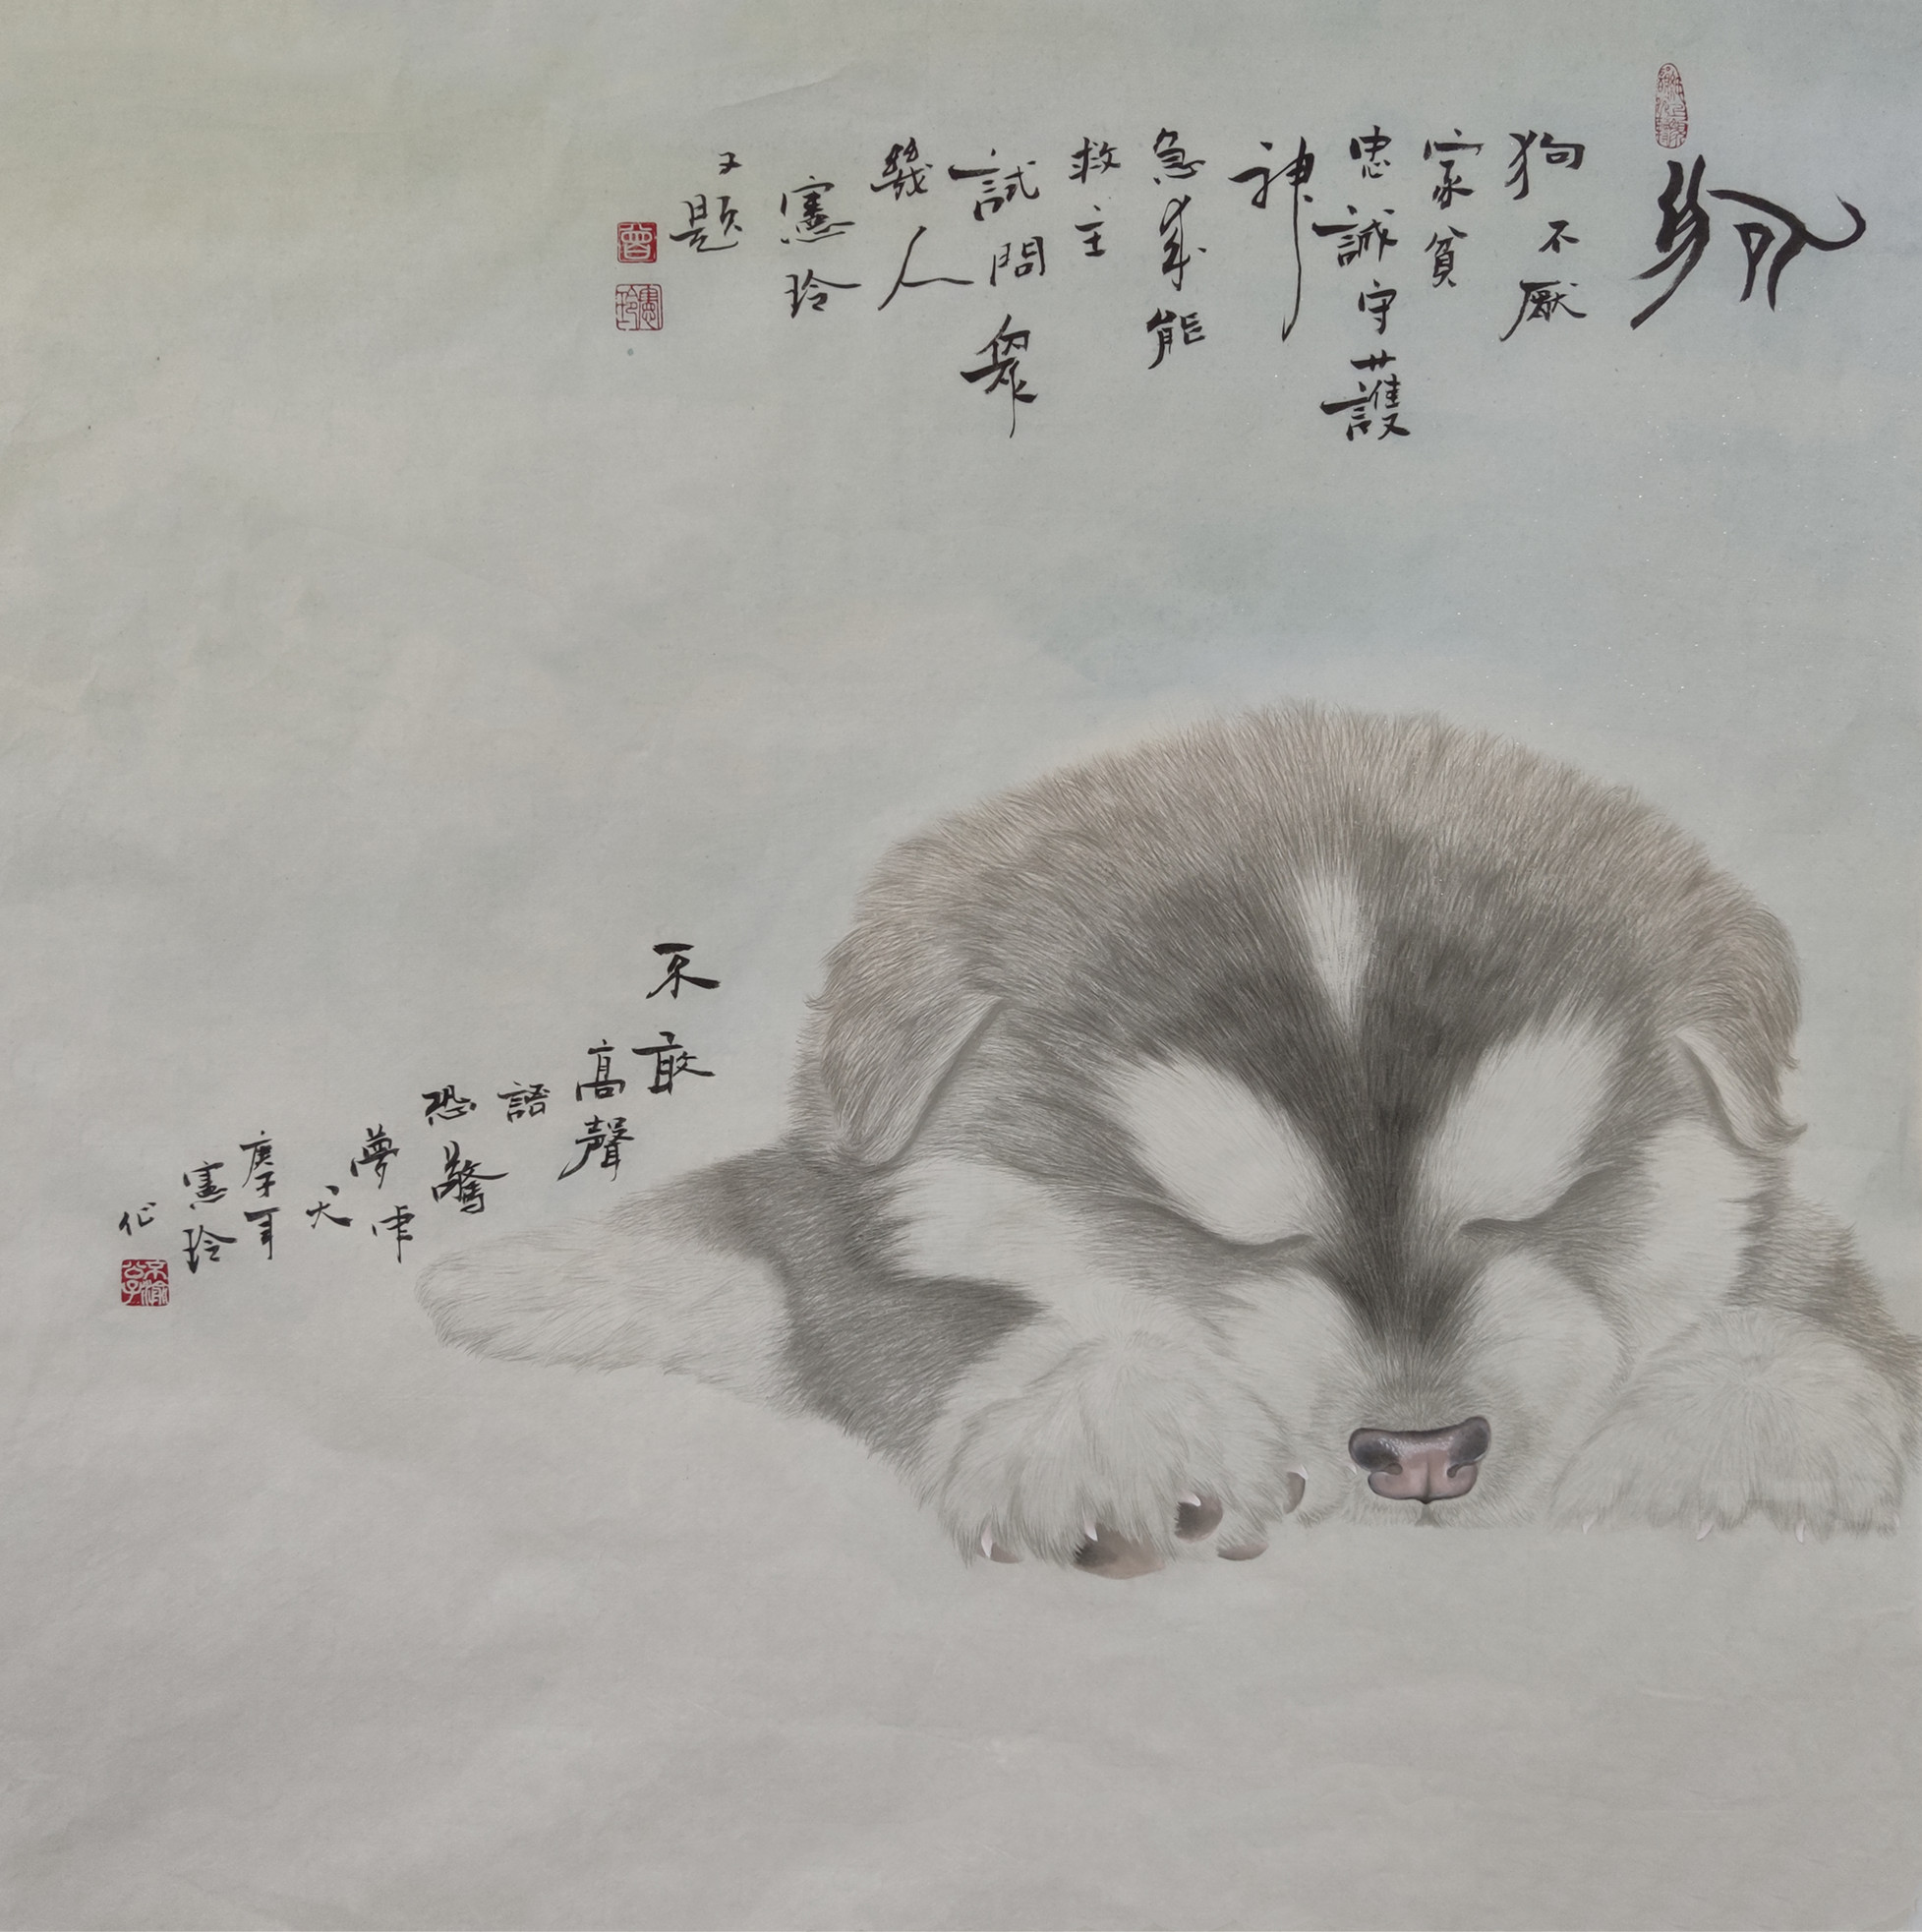 狗
狗不厭
家貧
忠誠守護
神
急能
救主
試問眾
幾人
憲玲
又題
曾
憲玲
不敢
高聲
語
恐驚
夢中
犬
庚子年
憲玲
作